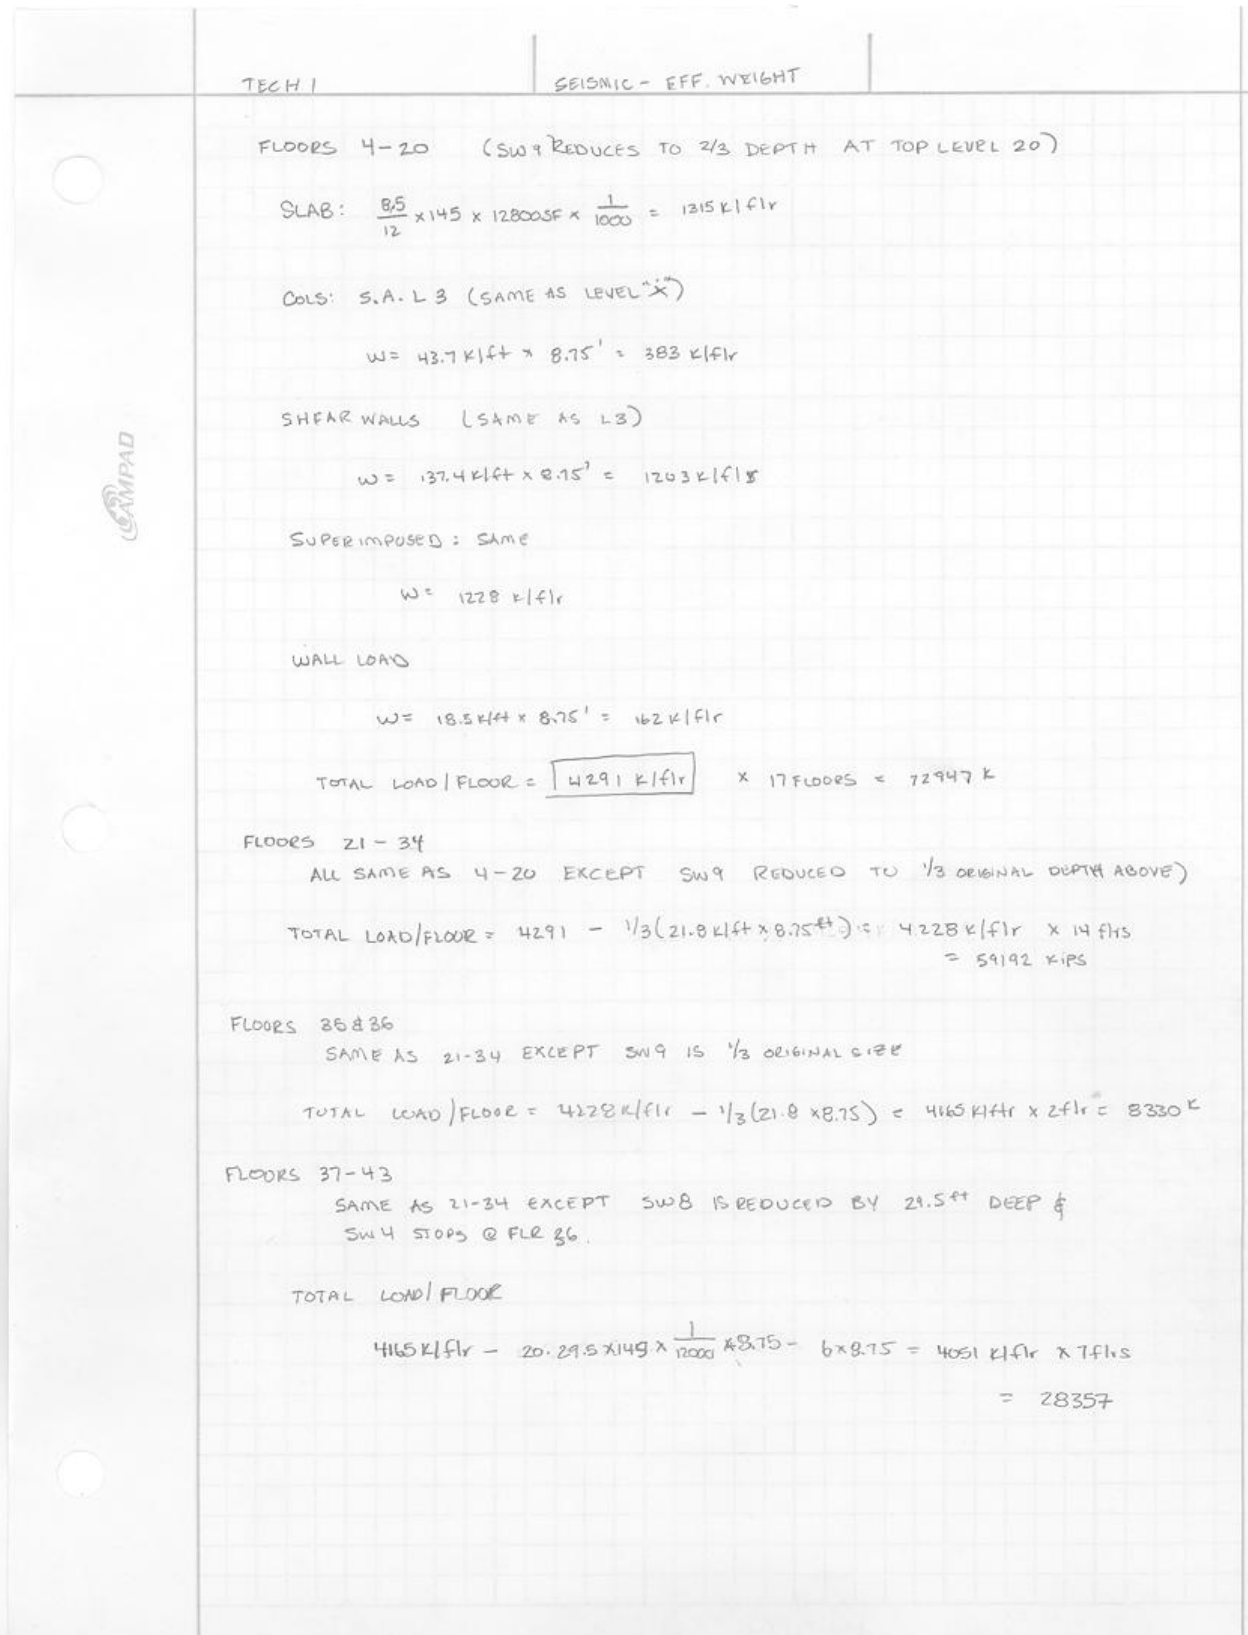 TECH 1
SEISMIC - EFF. WEIGHT
FLOORS 4-20 (SW 9 REDUCES TO 2/3 DEPTH AT TOP LEVEL 20)
SLAB: 8.5/12 x 145 x 12800SF x 1/1000 = 1315 k/flr
COLS: S.A. L3 (SAME AS LEVEL "X")
W = 43.7 k/ft x 8.75' = 383 k/flr
SHEAR WALLS (SAME AS L3)
W = 137.4 k/ft x 8.75' = 1203 k/flr
SUPERIMPOSED: SAME
W = 1228 k/flr
WALL LOAD
W = 18.5 k/ft x 8.75' = 162 k/flr
TOTAL LOAD/FLOOR = 4291 k/flr x 17 FLOORS = 72947 k
AMPAD
FLOORS 21-34
ALL SAME AS 4-20 EXCEPT SW9 REDUCED TO 1/3 ORIGINAL DEPTH ABOVE)
TOTAL LOAD/FLOOR = 4291 - 1/3(21.8 k/ft x 8.75 ft) = 4228 k/flr x 14 flrs
= 59192 KIPS
FLOORS 35 & 36
SAME AS 21-34 EXCEPT SW9 IS 1/3 ORIGINAL SIZE
TOTAL LOAD/FLOOR = 4228 k/flr - 1/3(21.8 x 8.75) = 4165 k/flr x 2flr = 8330 k
FLOORS 37-43
SAME AS 21-34 EXCEPT SW8 IS REDUCED BY 29.5 ft DEEP &
SW4 STOPS @ FLR 36.
TOTAL LOAD/FLOOR
4165 k/flr - 20·29.5 x 145 x 1/12000 x 8.75 - 6 x 8.75 = 4051 k/flr x 7flrs
= 28357